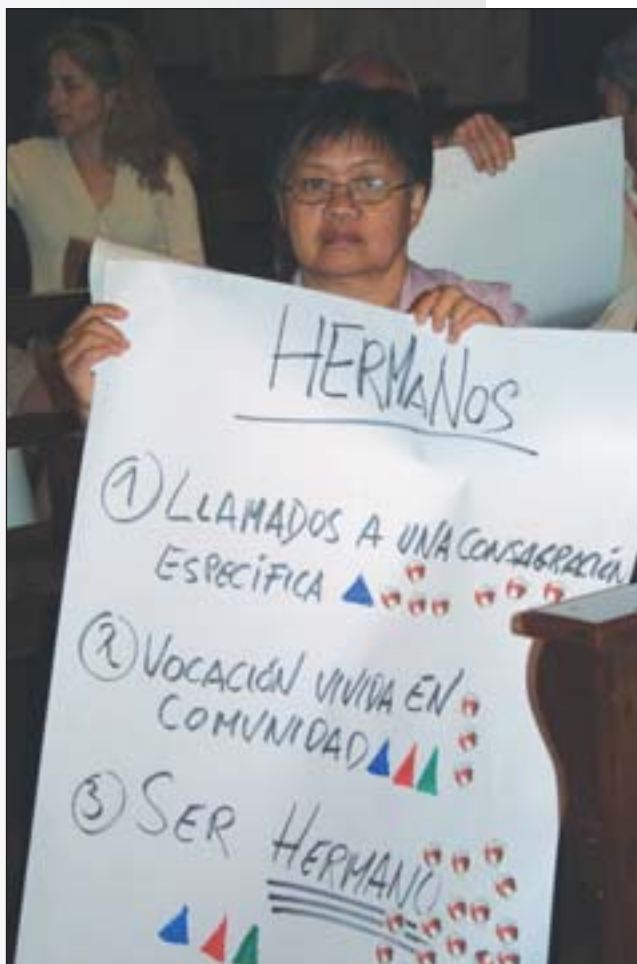 HERMANOS
1 LLAMADOS A UNA CONSAGRACIÓN
ESPECÍFICA
2 VOCACIÓN VIVIDA EN
COMUNIDAD
3 SER HERMANO